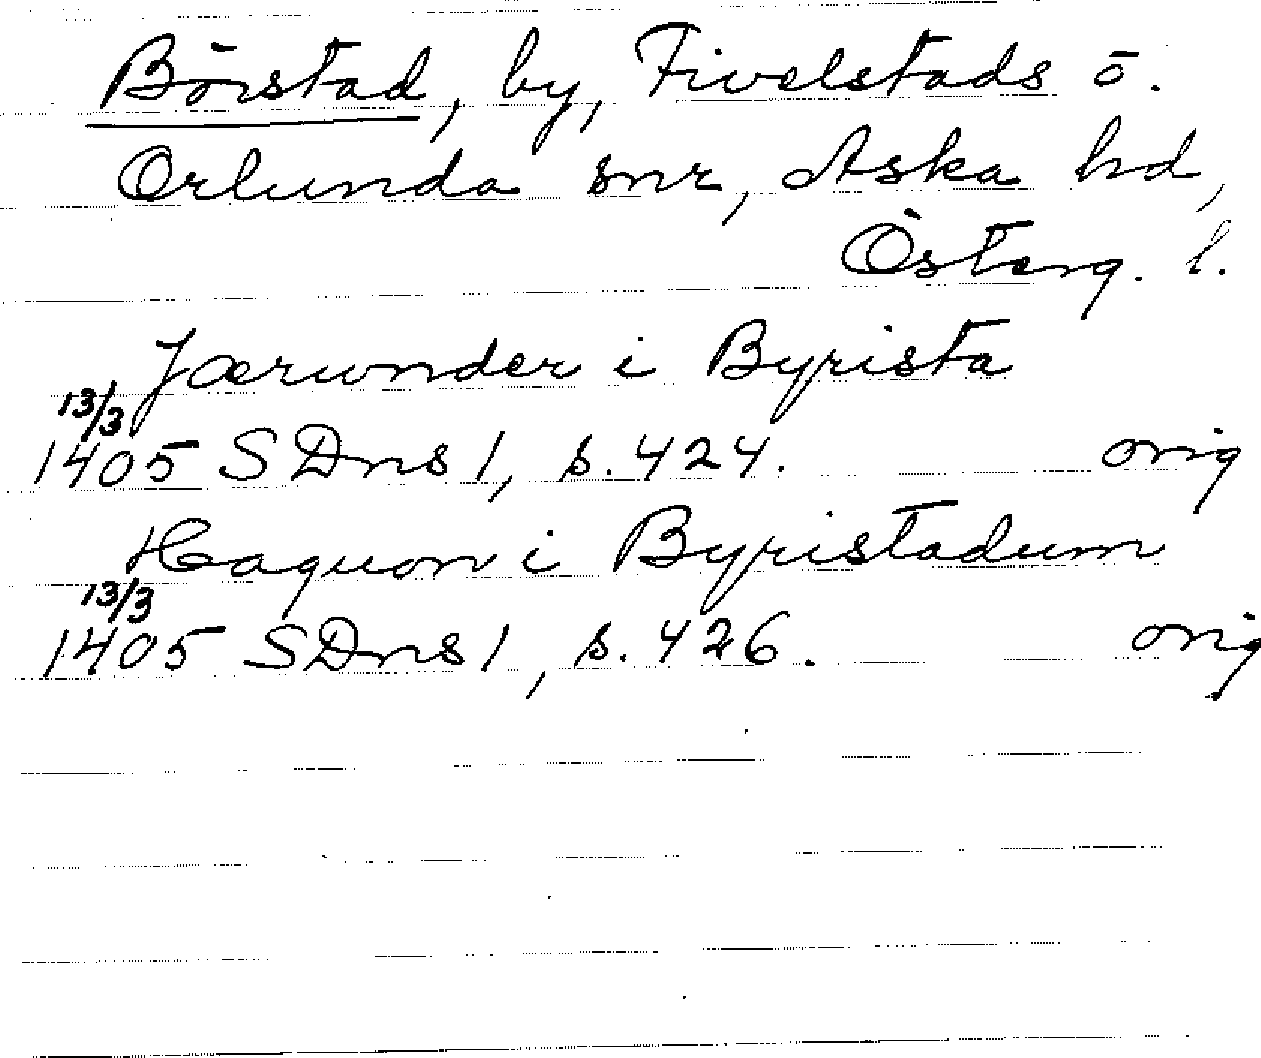 Börstad, by, Fivelstads o.
Orlunda snr, Aska hd,
Österg. l.
Jærunder i Byrista
13/3
1405 SDns 1, s. 424. orig
Haquon i Byristadum
13/3
1405 SDns 1, s. 426. orig